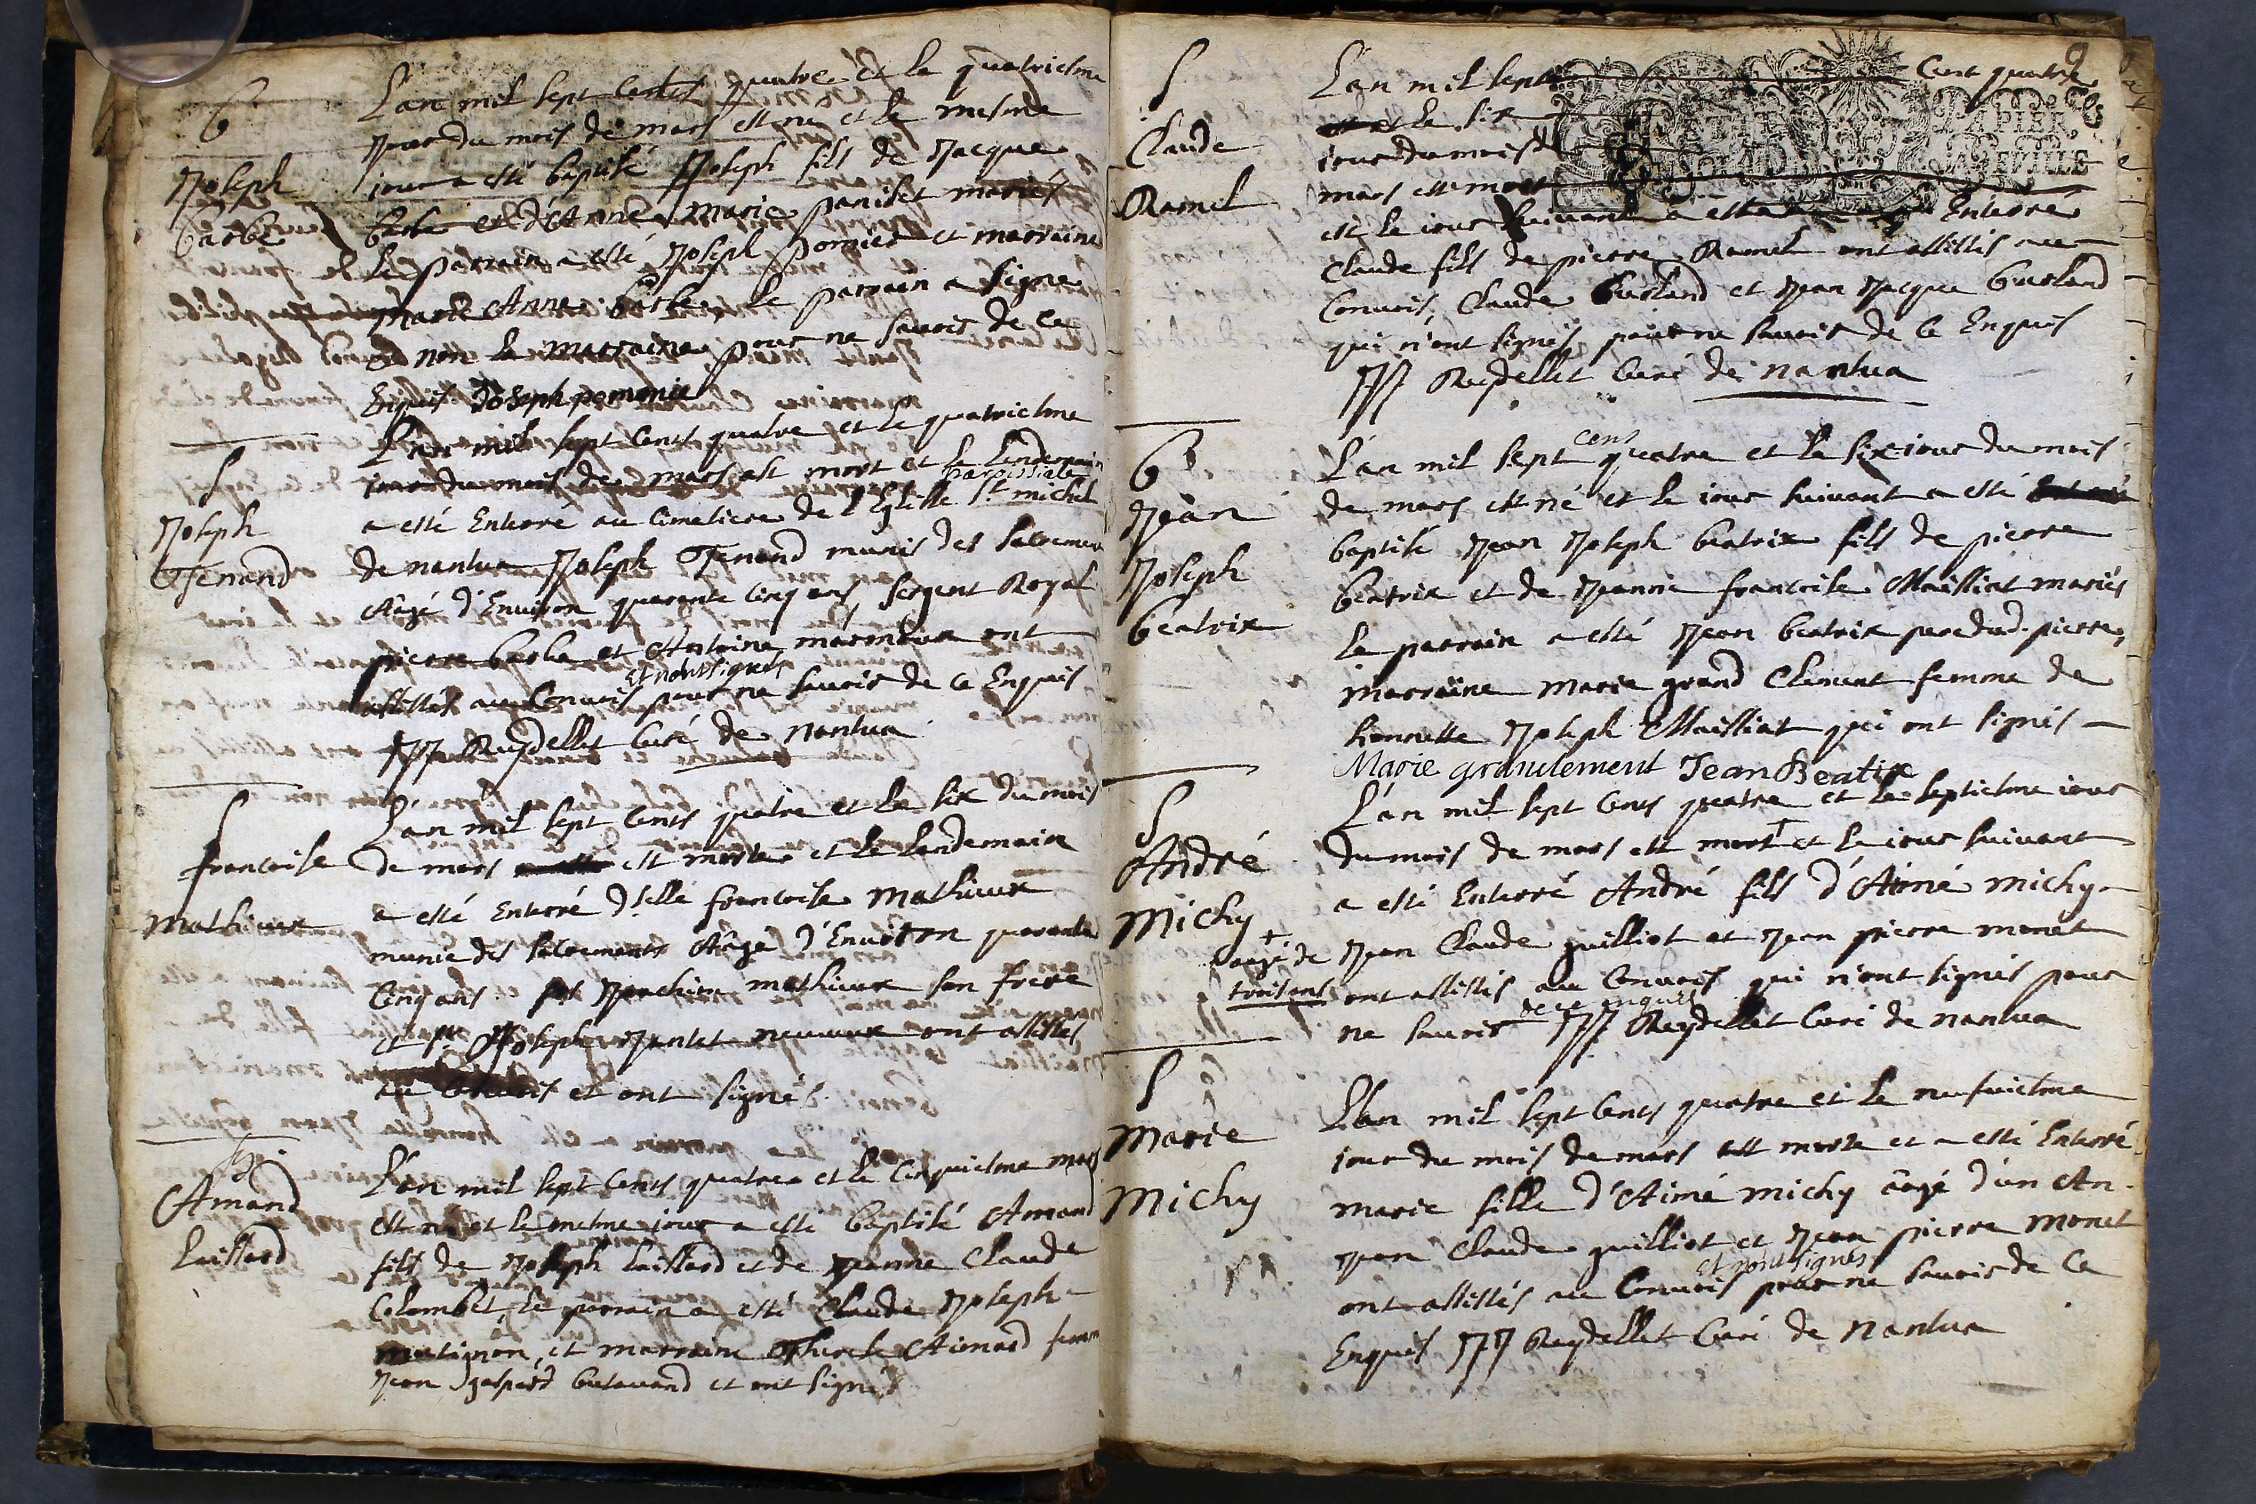 B
Joseph
barbe
L'an mil sept Cents quatre et le quatriesme
jour du mois de mars est né et le mesme
jour a esté baptisé Joseph fils de Jacque
barbe et d'Anne Marie paniset mariés
le parrain a esté Joseph pomier et marraine
Marie Anne barbe, le parrain a signe
et non la marraine pour ne savoir de ce
Enquis Joseph pomonie
S
Joseph
Jenand
L'an mil sept Cents quatre et le quatriesme
jour du mois de mars est mort et le lendemain
a esté Enterré au Cimetiere de l'Eglise parroissiale St michel
de nantua Joseph Jenand munis des sacremens
Aagé d'Environ quarante Cinq ans sergent Royal
pierre barbe et Antoine marmoux ont
assistés au Convois et n'ont signés pour ne savoir de ce Enquis
JJ Reydellet Curé de Nantua
S
francoise
Mathieux
L'an mil sept Cents quatre et le six du mois
de mars est morte et le landemain
a esté Enterré dlle francoise Mathieux
munie des sacrements Aagé d'Environ quarante
Cinq ans Joachim mathieux son frere
et Sr Joseph Jantet neuveux ont assistés
au Convois et ont signés
B
Amand
Laissard
L'an mil sept Cents quatre et le Cinquiesme mars
est né et le mesme jour a esté baptisé Amand
fils de Joseph laissard et de Jeanne Claude
Colombet, le parrain a esté Claude Joseph
mutinon, et marraine Therese Aimard femme
Jean gaspard butavand et ont signés
S
Claude
Ramel
L'an mil sept Cent quatre
et le six
jour du mois de
mars est mort
et le jour suivant a esté Enterré
Claude fils de pierre Ramel ont assistés au
Convois, Claude Gurland et Jean Jacque Gurland
qui n'ont signés pour ne savoir de ce Enquis
JJ Reydellet Curé de nantua
B
Jean
Joseph
beatrix
L'an mil sept cens quatre et le six jour du mois
de mars est né et le jour suivant a esté
baptisé Jean Joseph beatrix fils de pierre
beatrix et de Jeanne francoise Maissiat mariés
le parrain a esté Jean beatrix pere dud. pierre,
marraine Marie grand Clement femme de
honneste Joseph Maissiat qui ont signés
Marie granclement Jean Beatix
S
André
Michy
+ aagé de
trois ans
L'an mil sept Cents quatre et le septiesme jour
du mois de mars est mort et le jour suivant
a esté Enterré André fils d'Aimé michy +
Jean Claude guilliot et Jean pierre monet
ont assistés au Convois qui n'ont signés pour
ne savoir de ce enquis JJ Reydellet Curé de nantua
S
Marie
Michy
L'an mil sept Cents quatre et le neufuiesme
jour du mois de mars est morte et a esté Enterré
marie fille d'Aimé michy aagé d'un An
Jean Claude guilliot et Jean pierre monet
ont assistés au Convois et n'ont signés pour ne savoir de ce
Enquis JJ Reydellet Curé de Nantua
9
PAPIER